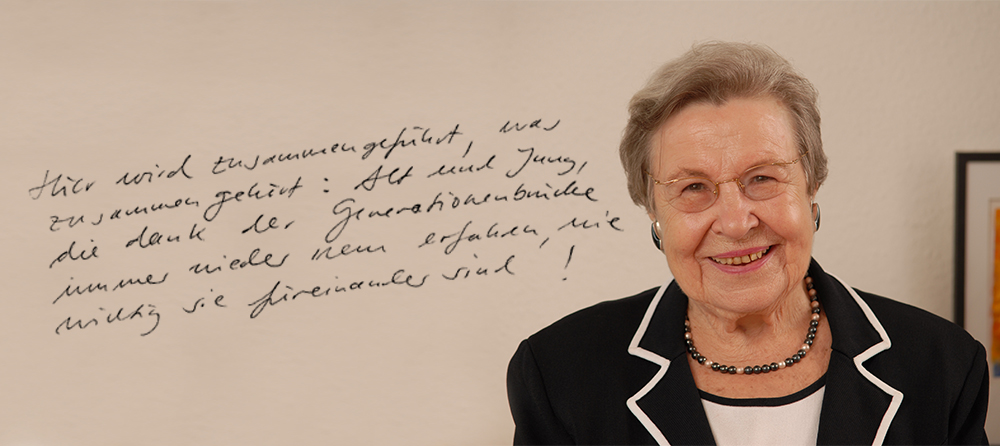 Hier wird zusammengeführt, was
zusammengehört: Alt und Jung,
die dank der Generationenbrücke
immer wieder neu erfahren, wie
wichtig sie füreinander sind!